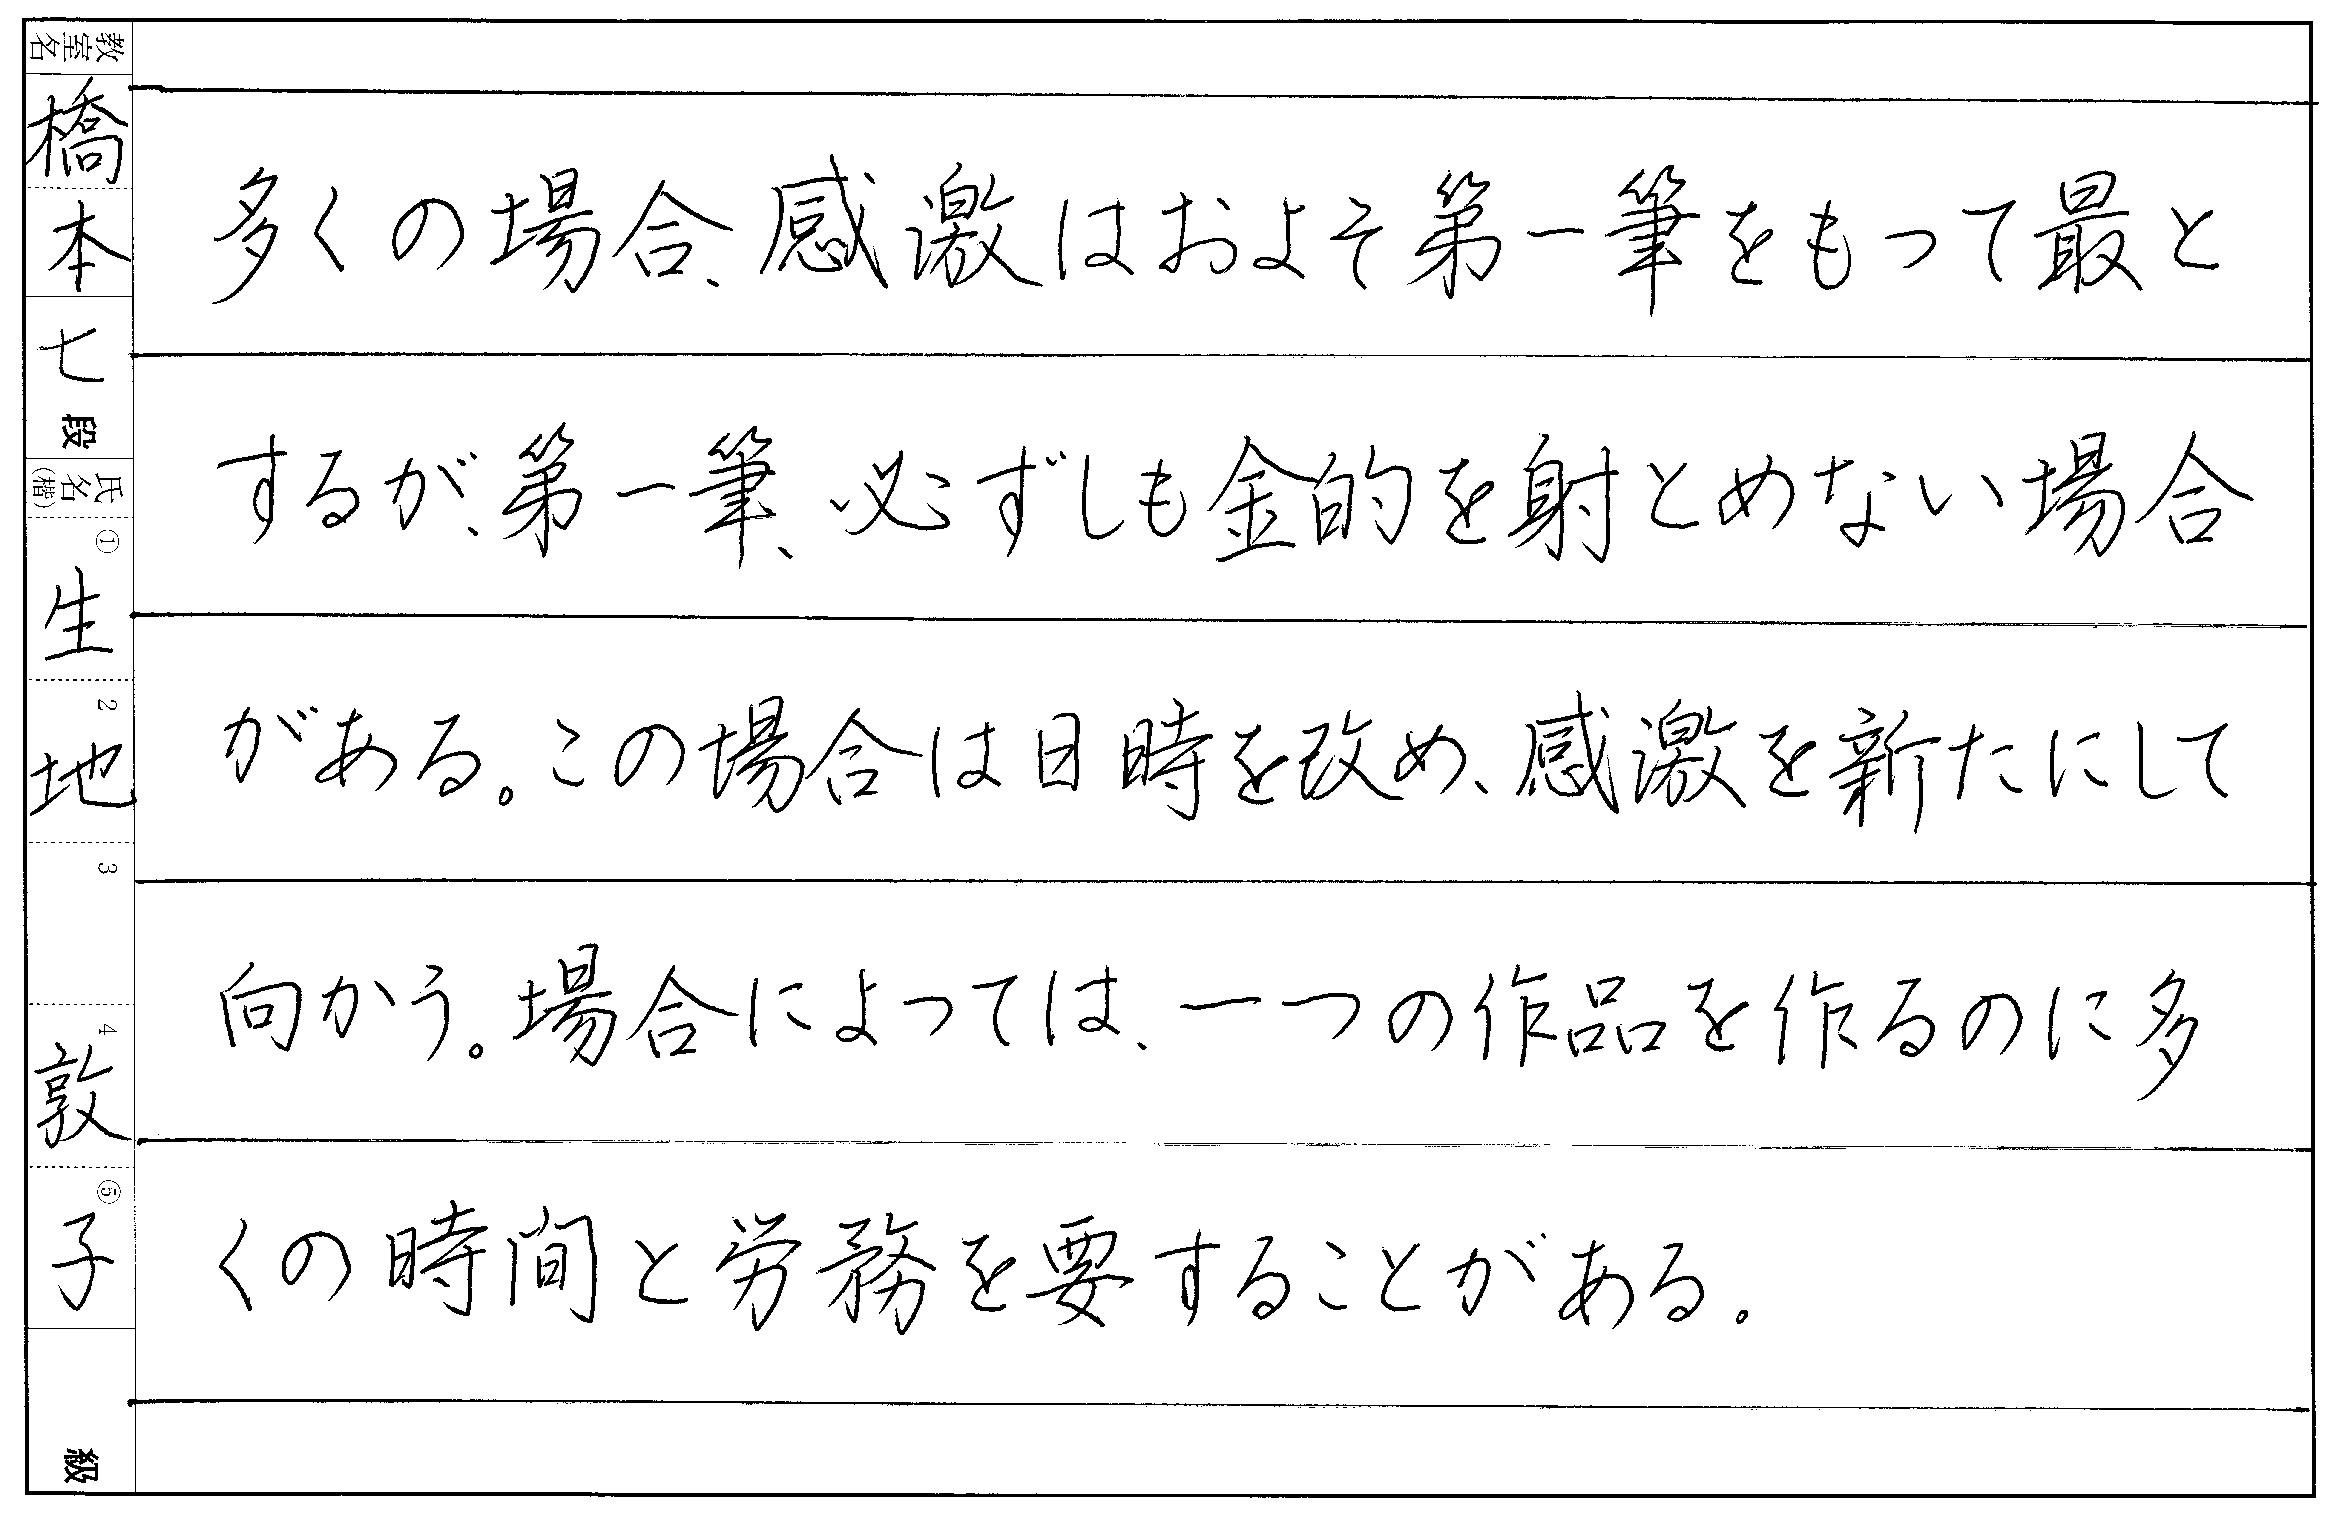 教室名
橋本
七段
氏名(楷)
① 生
2 地
3
4 敦
⑤ 子
級
多くの場合、感激はおよそ第一筆をもって最と
するが、第一筆、必ずしも金的を射とめない場合
がある。この場合は日時を改め、感激を新たにして
向かう。場合によっては、一つの作品を作るのに多
くの時間と労務を要することがある。